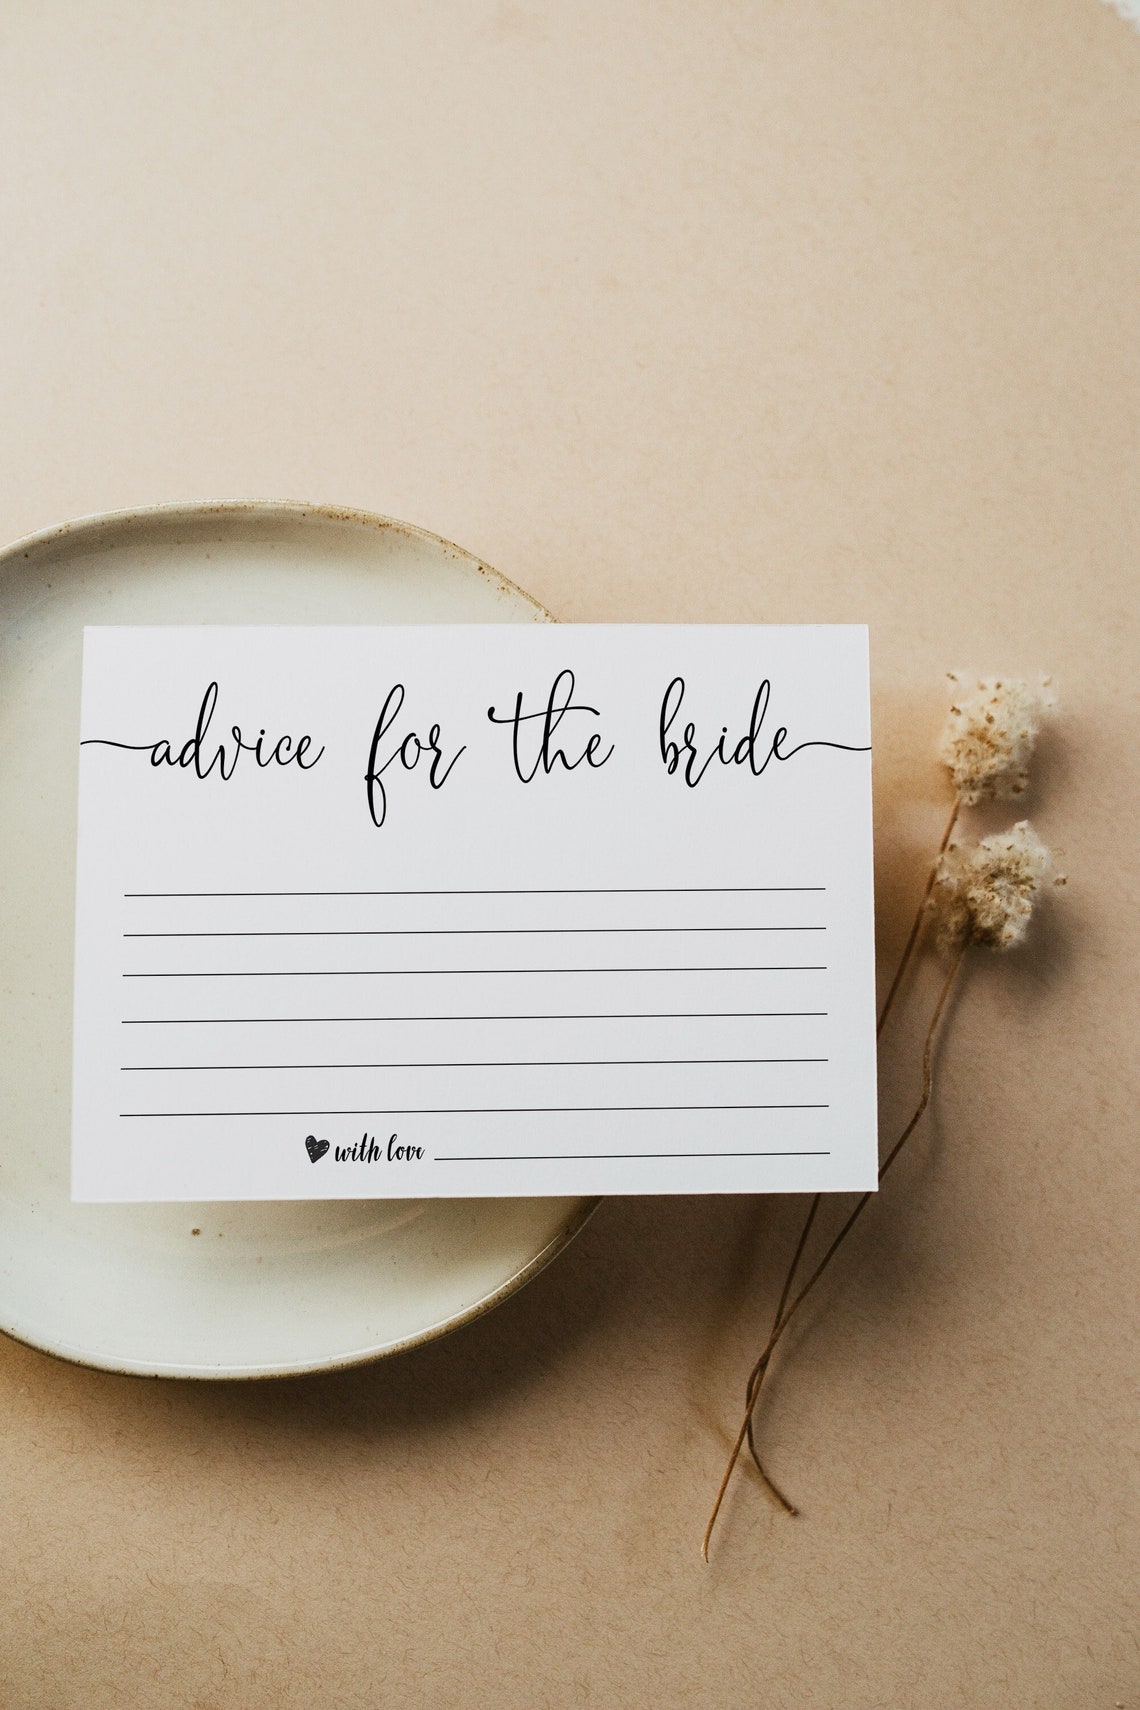 advice for the bride
with love